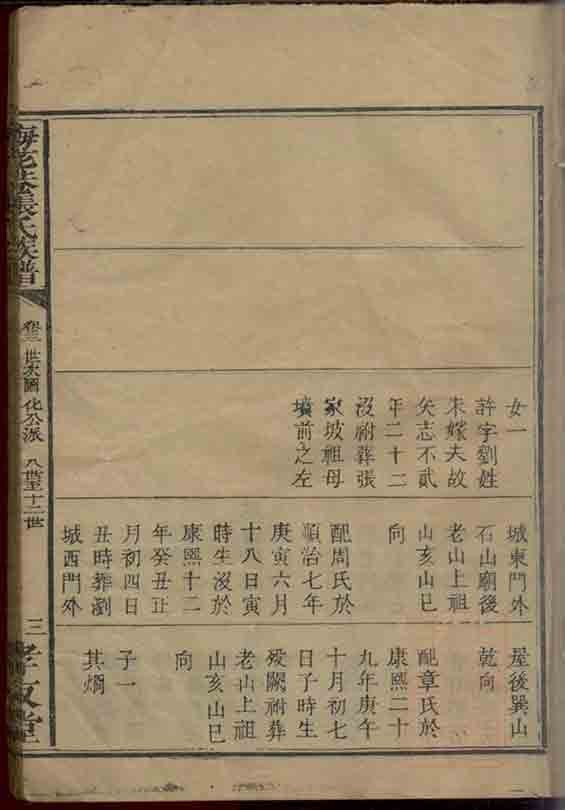 女一
許字劉姓
未嫁夫故
矢志不貳
年二十二
沒祔葬張
家坡祖母
墳前之左
城東門外
石山廟後
老山上祖
山亥山巳
向
配周氏於
順治七年
庚寅六月
十八日寅
時生沒於
康熙十二
年癸丑正
月初四日
丑時葬瀏
城西門外
屋後巽山
乾向
配章氏於
康熙二十
九年庚午
十月初七
日子時生
歿闕祔葬
老山上祖
山亥山巳
向
子一
其燗
張氏族譜
卷三
世次圖 化公派 八世至十二世
三
孝友堂